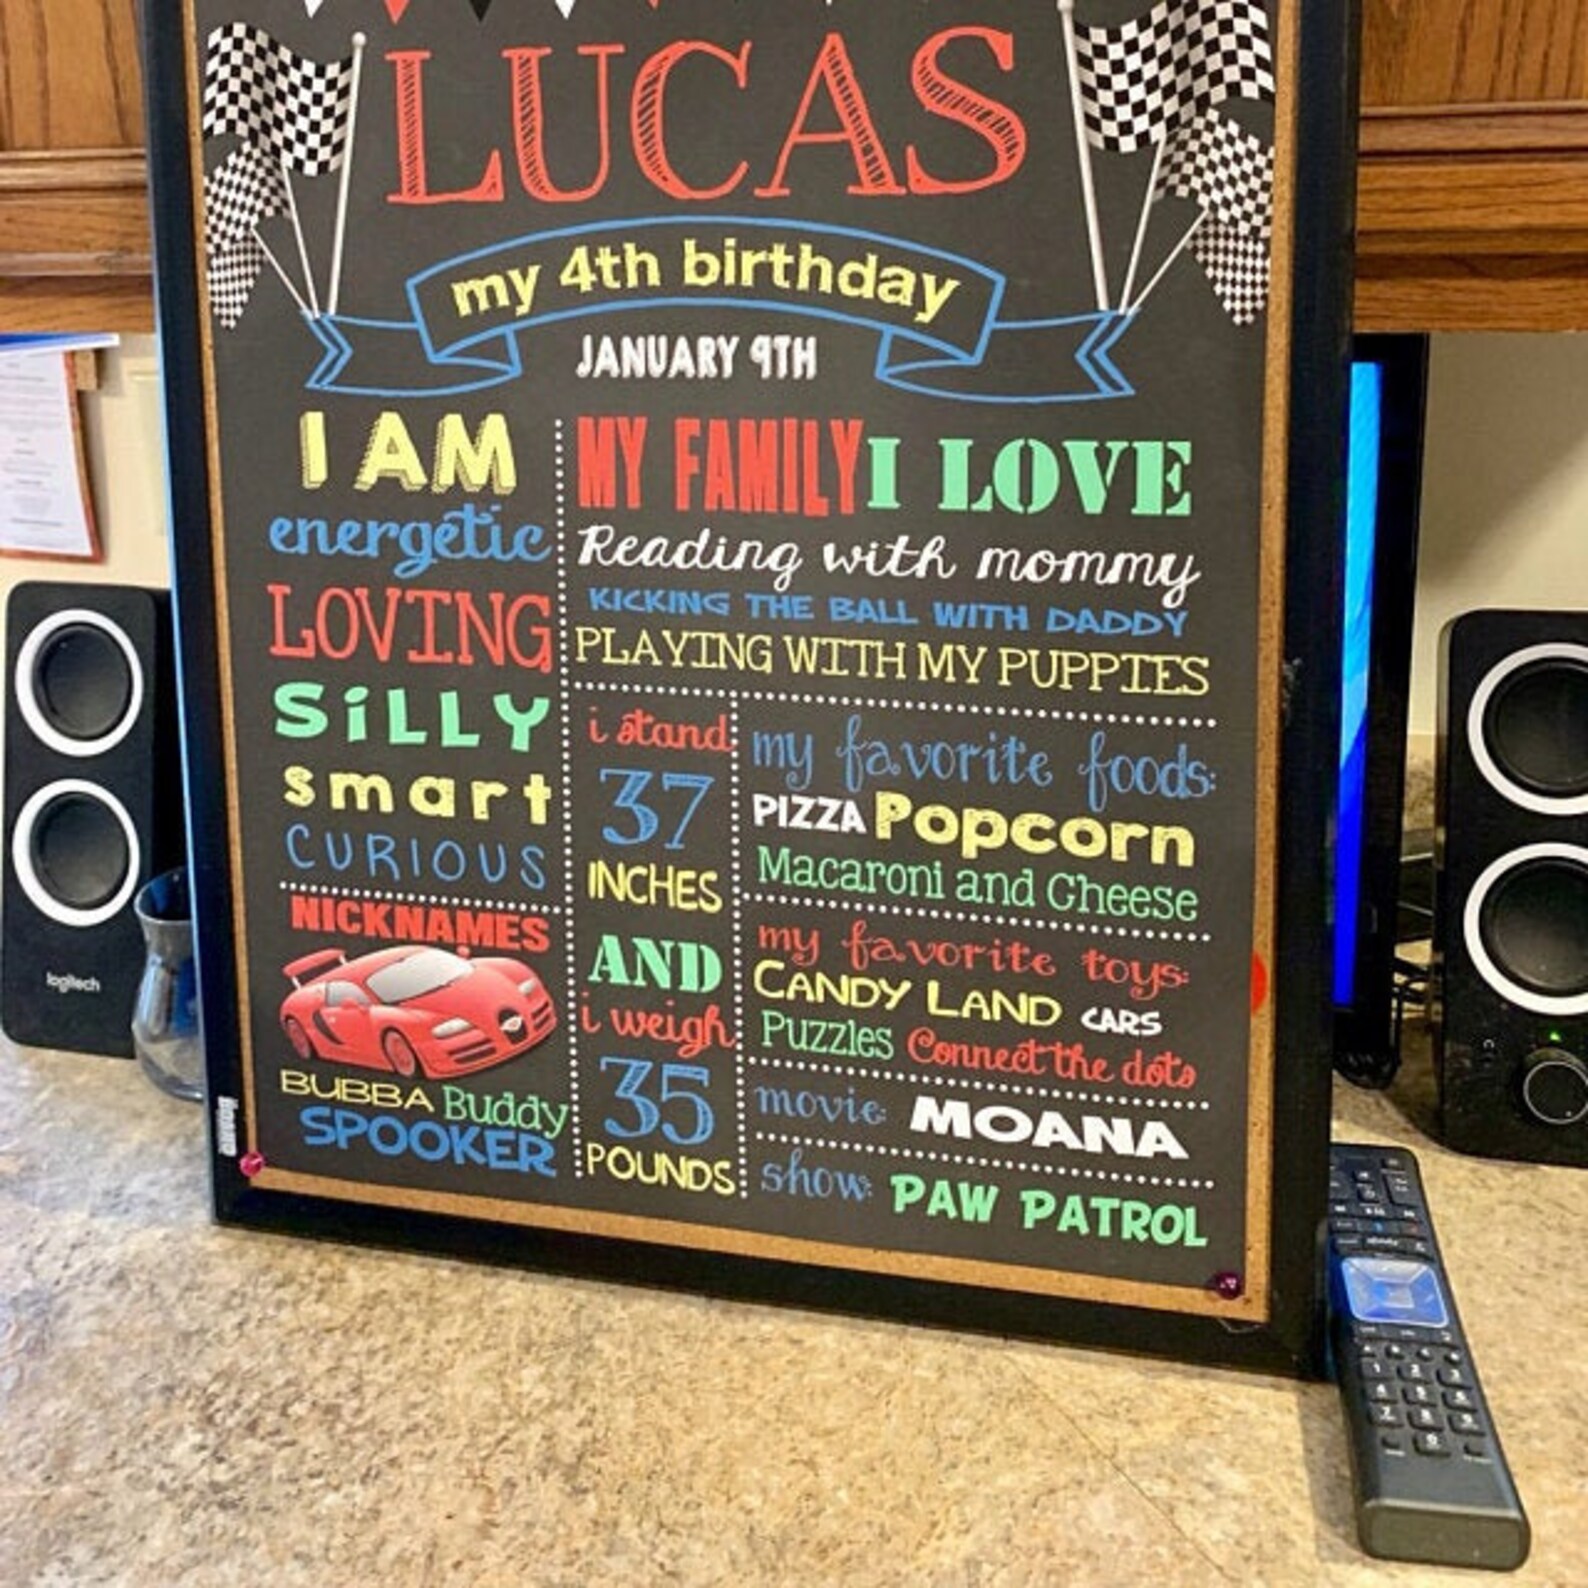 LUCAS
my 4th birthday
JANUARY 9TH
I AM
energetic
LOVING
SiLLY
smart
CURIOUS
NICKNAMES
BUBBA Buddy
SPOOKER
MY FAMILY I LOVE
Reading with mommy
KICKING THE BALL WITH DADDY
PLAYING WITH MY PUPPIES
i stand
37
INCHES
AND
i weigh
35
POUNDS
my favorite foods:
PIZZA Popcorn
Macaroni and Cheese
my favorite toys:
CANDY LAND CARS
Puzzles Connect the dots
movie: MOANA
show: PAW PATROL
logitech
1 2 3
4 5 6
7 8 9
0